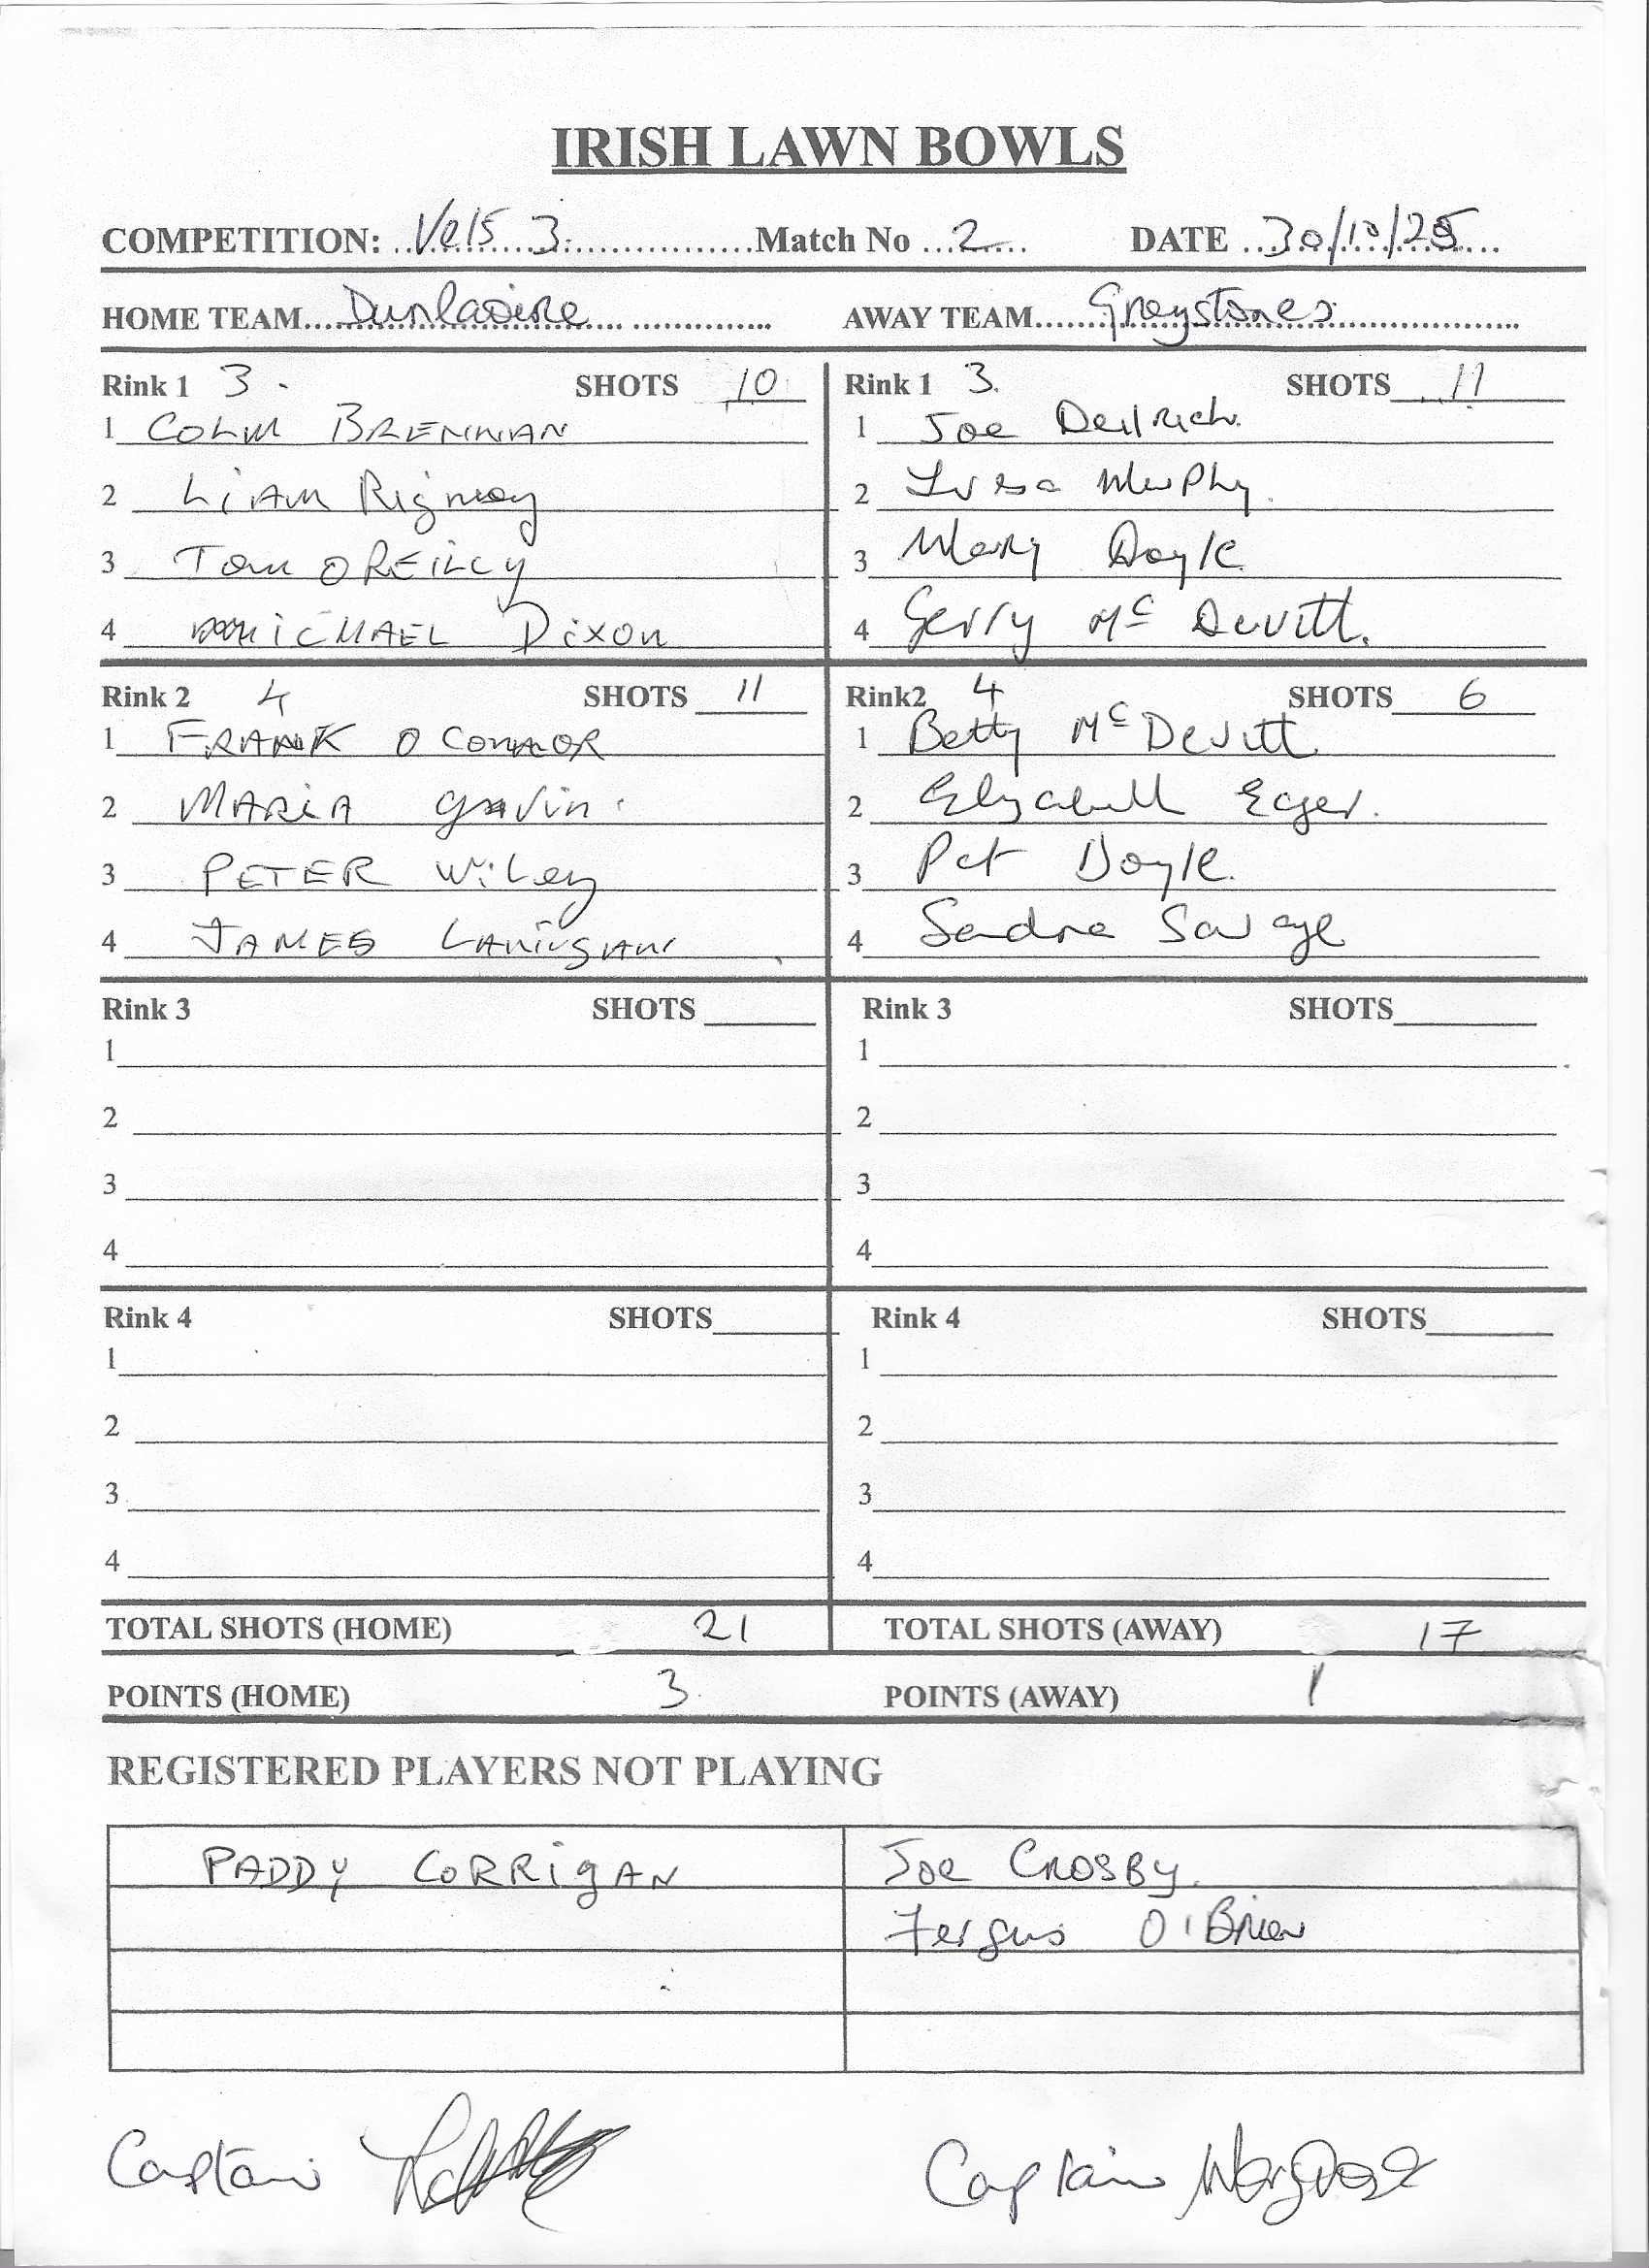 IRISH LAWN BOWLS
COMPETITION: Vets 3 Match No 2 DATE 30/10/25
HOME TEAM Dunlaoire AWAY TEAM Greystones
Rink 1 3 SHOTS 10
1 COLM BRENNAN
2 LiAM Rigney
3 Tom OREiLLY
4 MiCHAEL DixON
Rink 1 3 SHOTS 11
1 Joe
2 Murphy
3 Mary Doyle
4 Gerry Mc Devitt
Rink 2 4 SHOTS 11
1 FRANK O CONNOR
2 MARiA gavin
3 PETER WiLey
4 JAMES LANigAN
Rink2 4 SHOTS 6
1 Betty McDevitt
2 Elizabeth Eger
3 Pat Doyle
4 Sandra Savage
Rink 3 SHOTS
1
2
3
4
Rink 3 SHOTS
1
2
3
4
Rink 4 SHOTS
1
2
3
4
Rink 4 SHOTS
1
2
3
4
TOTAL SHOTS (HOME) 21 TOTAL SHOTS (AWAY) 17
POINTS (HOME) 3 POINTS (AWAY) 1
REGISTERED PLAYERS NOT PLAYING
PADDY CORRigAN
Joe CROSBY
Fergus O'Brien
Captain
Captain